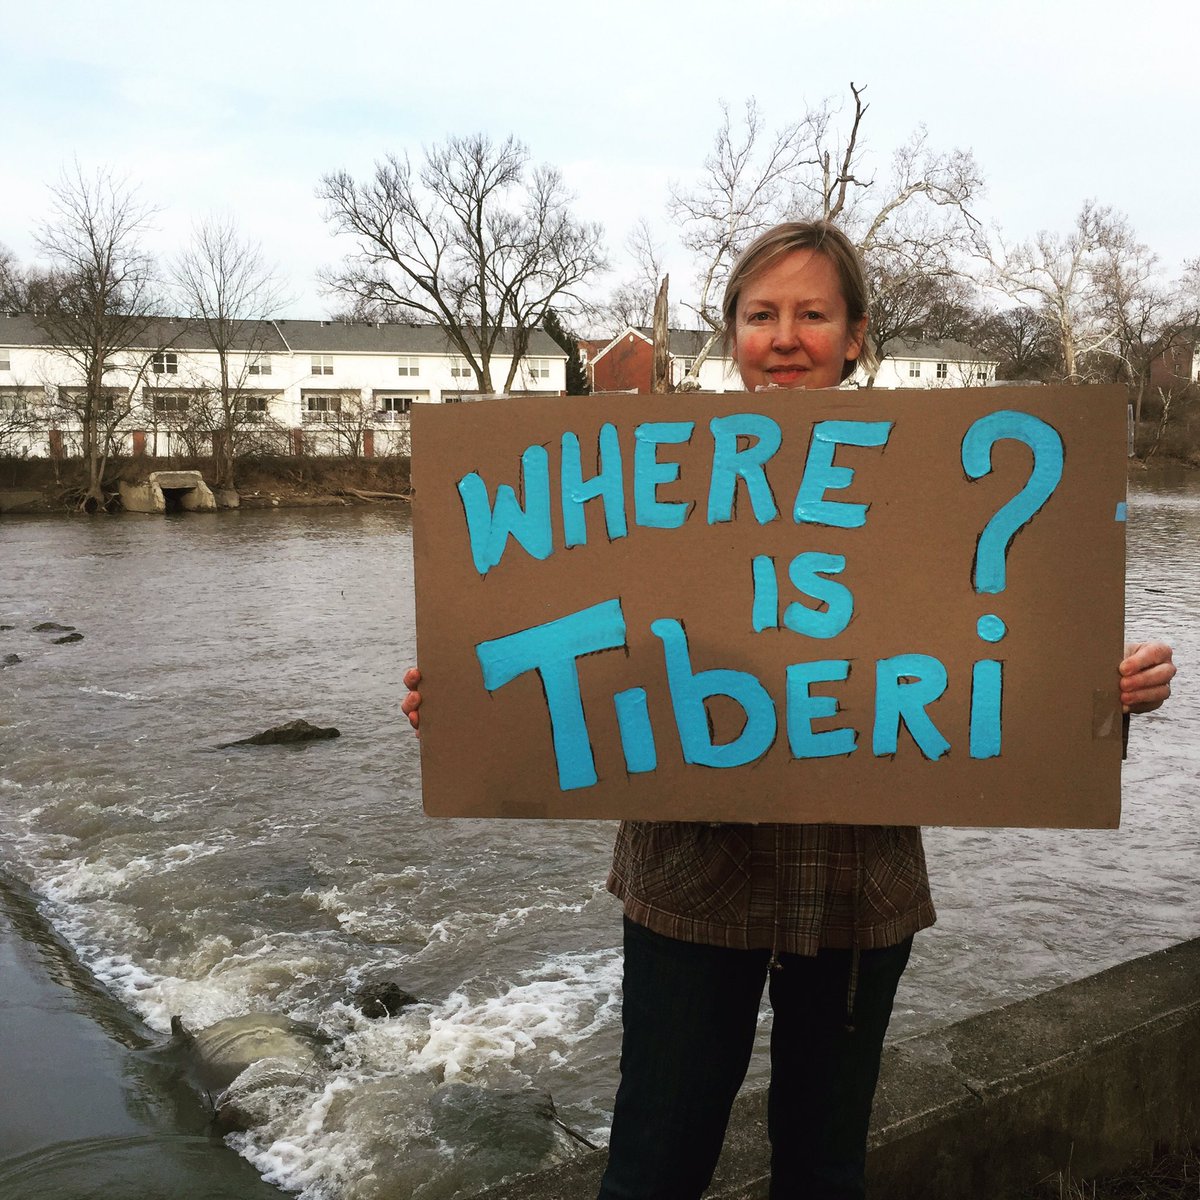 WHERE
IS
TibERi?